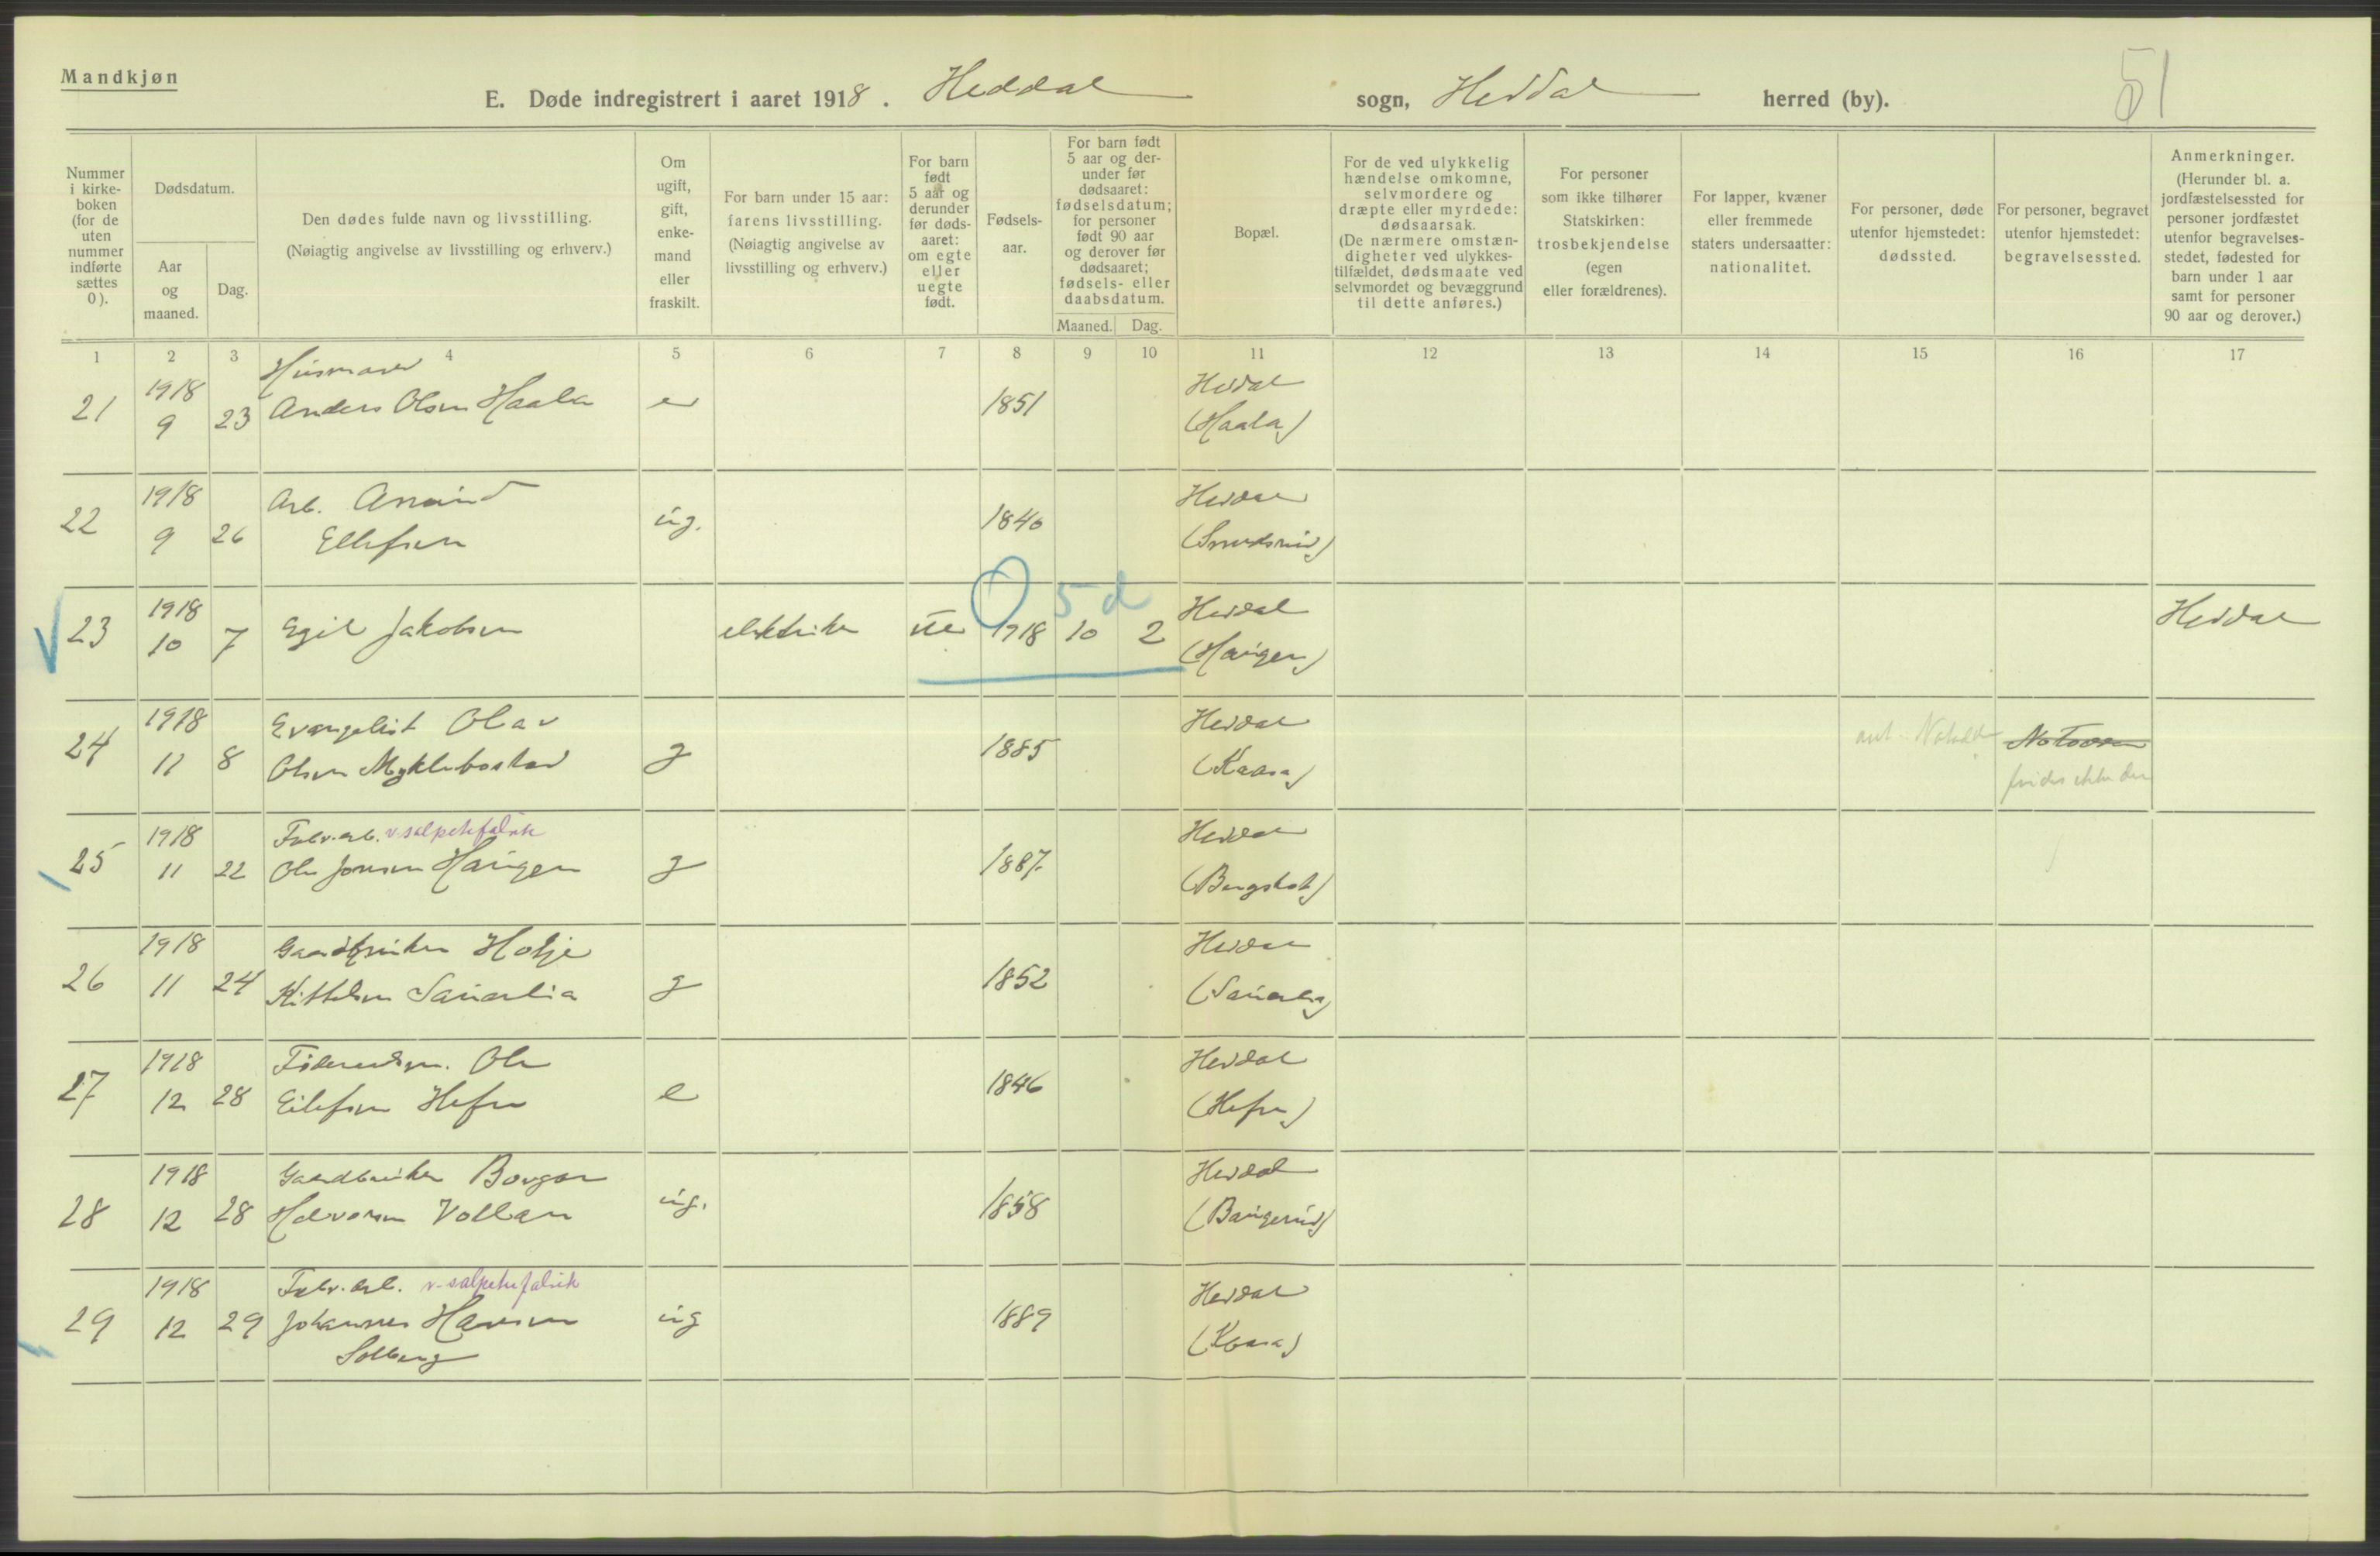 Mandkjøn
E. Døde indregistrert i aaret 1918. Heddal sogn, Heddal herred (by).
51
Nummer i kirke-boken (for de uten nummer indførte sættes 0).
Dødsdatum.
Aar og maaned.
Dag.
Den dødes fulde navn og livsstilling.
(Nøiagtig angivelse av livsstilling og erhverv.)
Om ugift, gift, enke-mand eller fraskilt.
For barn under 15 aar: farens livsstilling.
(Nøiagtig angivelse av livsstilling og erhverv.)
For barn født 5 aar og derunder før døds-aaret: om egte eller uegte født.
Fødsels-aar.
For barn født 5 aar og der-under før dødsaaret: fødselsdatum; for personer født 90 aar og derover før dødsaaret; fødsels- eller daabsdatum.
Maaned. Dag.
Bopæl.
For de ved ulykkelig hændelse omkomne, selvmordere og dræpte eller myrdede: dødsaarsak.
(De nærmere omstæn-digheter ved ulykkes-tilfældet, dødsmaate ved selvmordet og bevæggrund til dette anføres.)
For personer som ikke tilhører Statskirken: trosbekjendelse (egen eller forældrenes).
For lapper, kvæner eller fremmede staters undersaatter: nationalitet.
For personer, døde utenfor hjemstedet: dødssted.
For personer, begravet utenfor hjemstedet: begravelsessted.
Anmerkninger.
(Herunder bl. a. jordfæstelsessted for personer jordfæstet utenfor begravelses-stedet, fødested for barn under 1 aar samt for personer 90 aar og derover.)
1 2 3 4 5 6 7 8 9 10 11 12 13 14 15 16 17
Husmand
1918 Heddal
21 9 23 Anders Olsen Haala e 1851 (Haala)
1918 Arb. Amund Heddal
22 9 26 Ellefsen ug. 1840
5 d
1918 Heddal
23 10 7 Egil Jakobsen elektriker ue 1918 10 2 (Haugen) Heddal
1918 Evangelist Olav Heddal
24 11 8 Olsen Myklebostad g 1885 (Kaasa) Notodden
findes ikke der
1918 Fabr. arb. v. salpeterfabrik Heddal
25 11 22 Ole Jonsen Haugen g 1887 (Bergstot)
1918 Gaardbruker Hotje Heddal
26 11 24 Kittelsen Sauarlia g 1852 (Sauarlia)
1918 Føderaadsm. Ole Heddal
27 12 28 Eilefsen Hefre e 1846 (Hefre)
1918 Gaardbruker Borgar Heddal
28 12 28 Halvorsen Vollan ug. 1858 (Baugerud)
1918 Fabr. arb. v. salpeterfabrik Heddal
29 12 29 Johannes Hansen ug 1889 (Kaasa)
Solberg